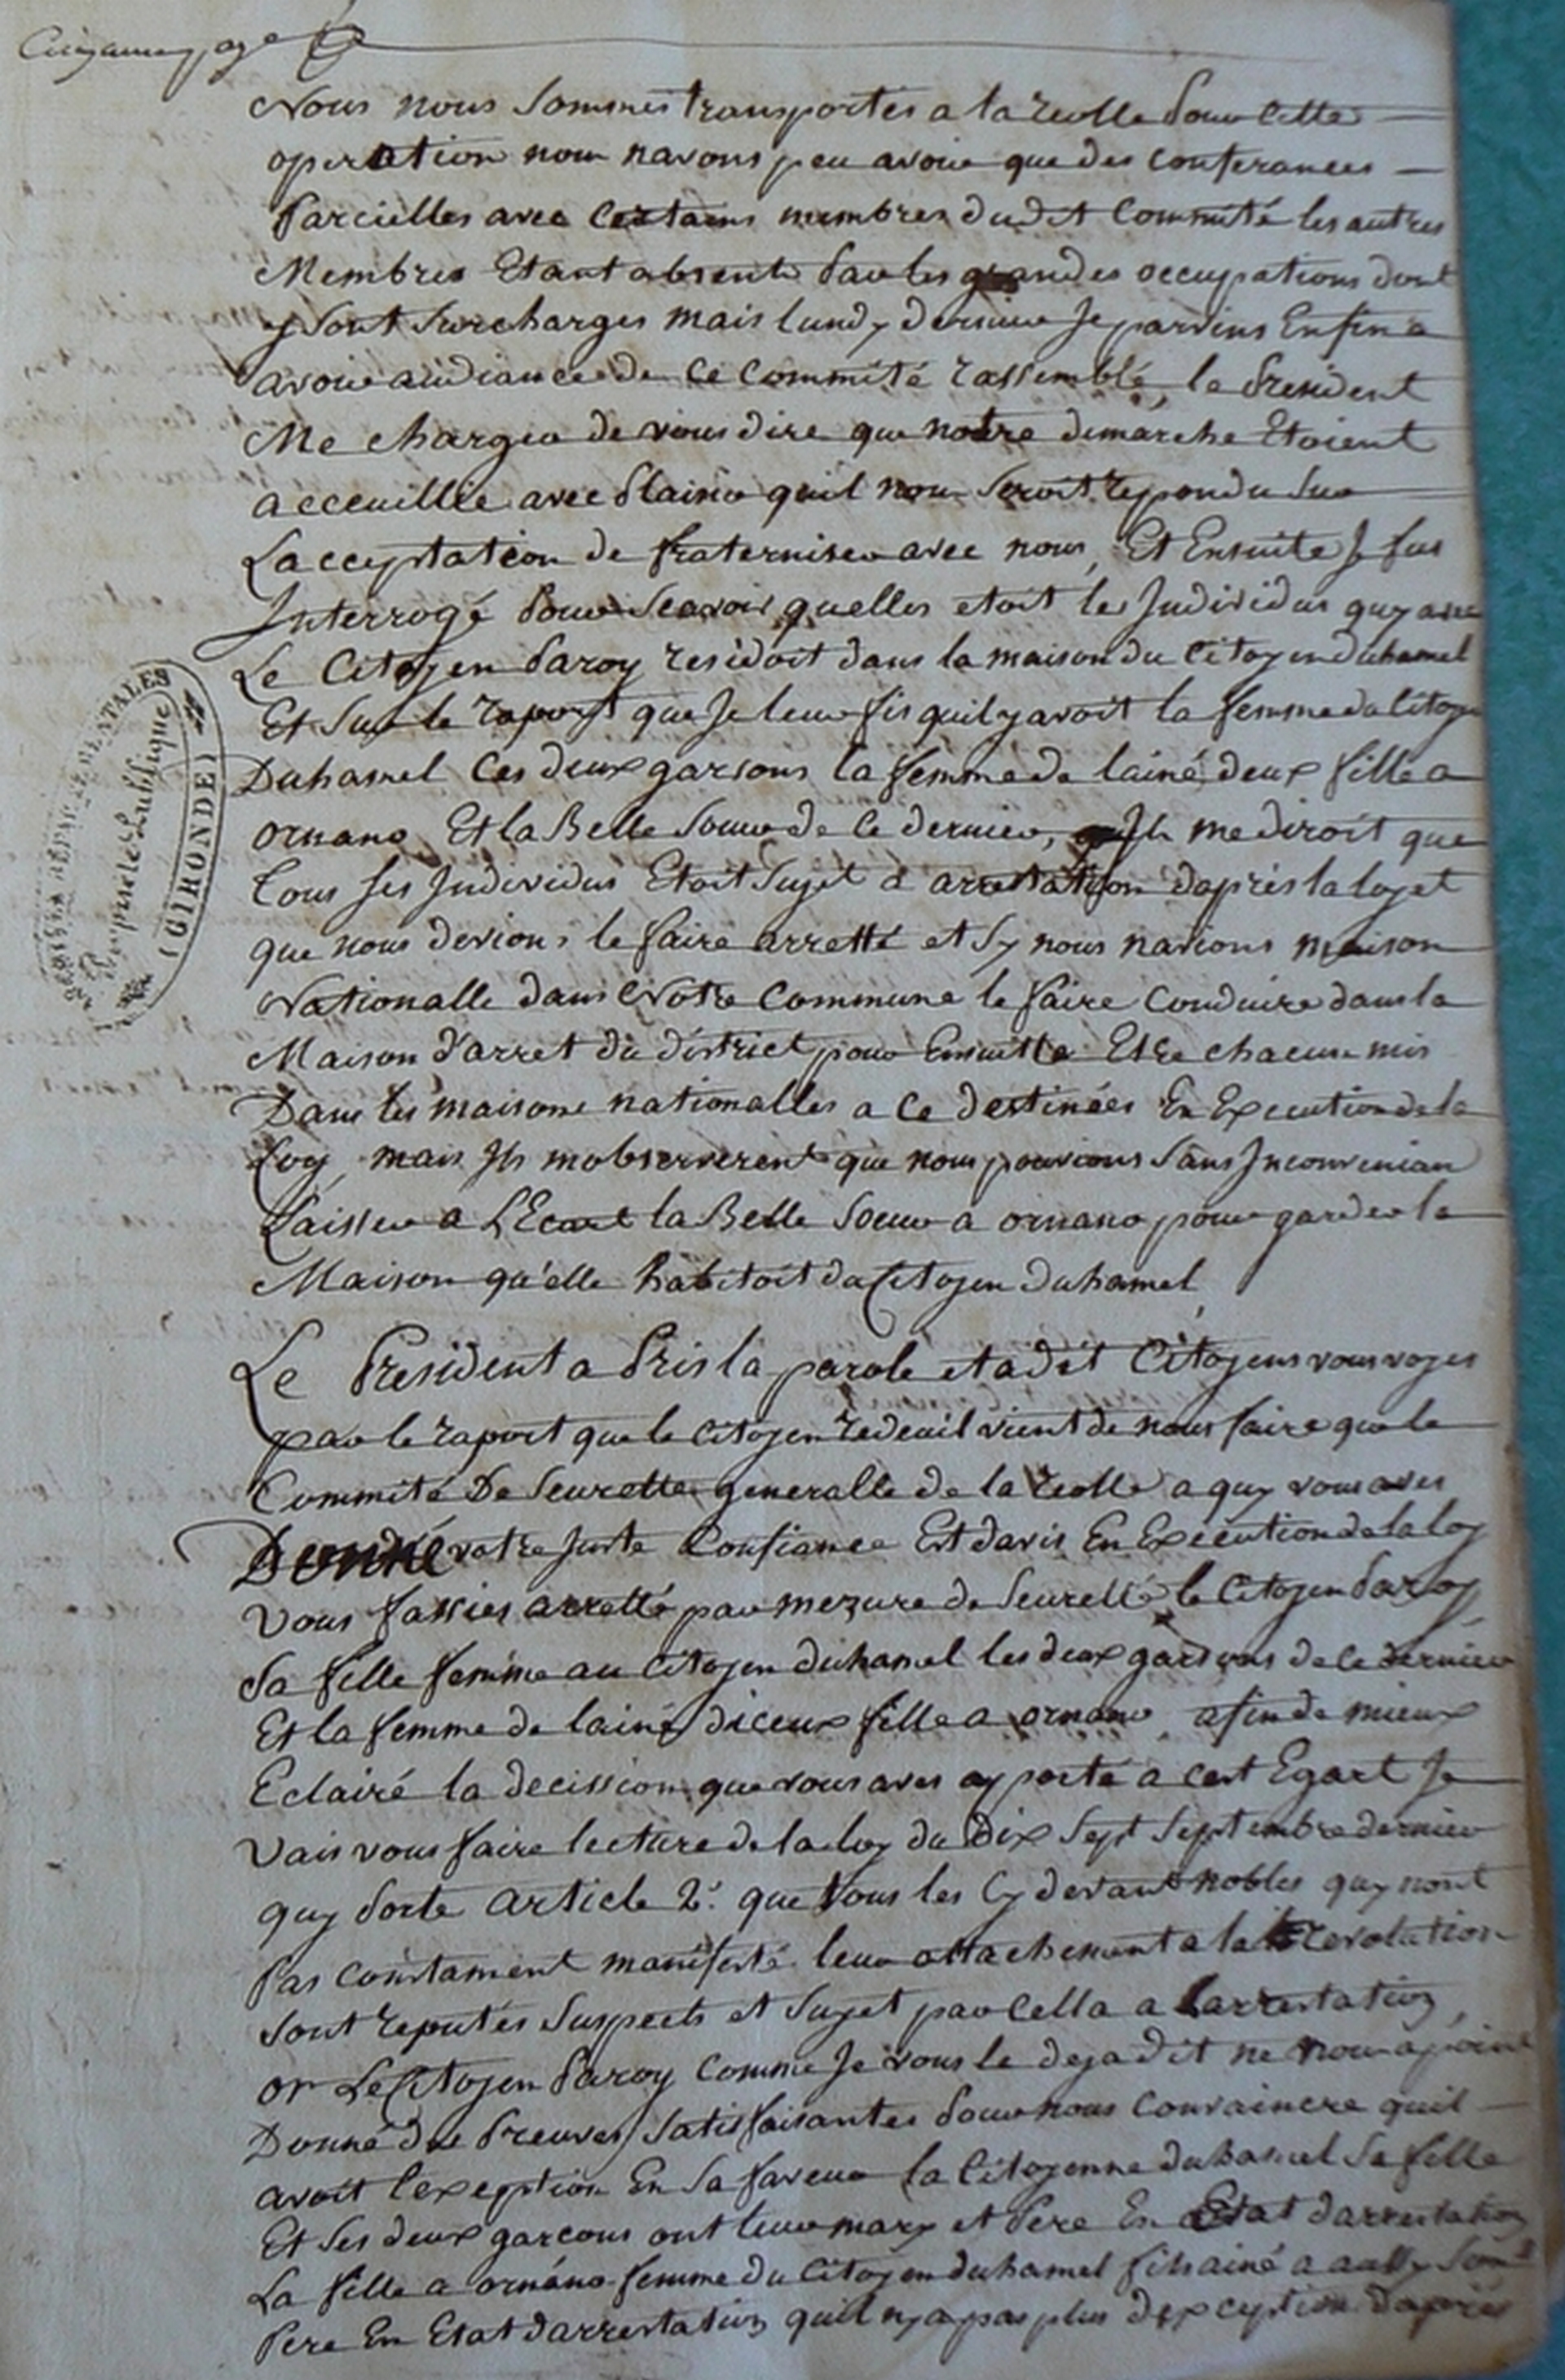 Cinquieme page
Nous nous sommes transportés a la reolle pour cette
operation nous navons peu avoir que des conferances
parcielles avec certains membres dudit Commité les autres
Membres Etant absents par les grandes occupations dont
y sont surchargés mais lundy dernier Je parvins Enfin a
avoir audiance de ce Commité rassemblé, le president
Me chargea de vous dire que notre demarche Etoient
acceuillie avec plaisir quil nous seroit repondu sur
Lacceptation de fraterniser avec nous, Et Ensuite Je fus
Interrogé pour scavoir quelles etoit les Individus quy avec
Le Citoyen paroy residoit dans la maison du Citoyen duhamel
Et sur le raport que Je leur fis quil y avoit la femme du Citoyen
Duhamel Ces deux garsons la femme de lainé deux fille a
ornano Et la Belle soeur de ce dernier, Ils me diroit que
tous ses Individus Etoit sujet a arrestation dapres la loy et
que nous devions le faire arretté et sy nous navions maison
Nationalle dans Notre Commune le faire conduire dans la
Maison d'arret du district pour Ensuitte Etre chacun mis
Dans les maisons nationalles a ce destinées En Execution de la
Loy, mais Ils mobserverent que nous pouvions sans Inconvenian
Laisser a LEcart la Belle soeur a ornano pour garder la
Maison qu'elle habitoit du Citoyen duhamel,
Le President a Pris la parole et a dit Citoyens vous voyes
par le raport que le Citoyen redeuil vient de nous faire que le
Commité De seurette generalle de la reolle a quy vous aves
Donné votre juste Confiance Est davis En Execution de la loy
Vous fassies arretté par mezure de seuretté le Citoyen paroy
sa fille femme au Citoyen duhamel les deux garsons de ce dernier
Et la femme de lainé diceux fille a ornano, afin de mieux
Eclairé la decission que vous aves a porté a cest Egart Je
vais vous faire lecture de la loy du dix sept septembre dernier
quy porte article 2.e que tous les Cy devant nobles quy nont
pas constament manifesté leur attachement a la revolution
sont reputés suspects et sujet par cella a Larrestation,
or Le Citoyen paroy comme Je vous le deja dit ne nous a point
Donné des preuves satisfaisantes pour nous convaincre quil
avoit l'exeption En sa faveur la Citoyenne duhamel sa fille
Et ses deux garcons ont leur mary et pere En Etat darrestation
La fille a ornano femme du Citoyen duhamel fils ainé a aussy son
pere En Etat darrestation quil ny a pas plus dexception dapres
Propriété Publique
(GIRONDE)